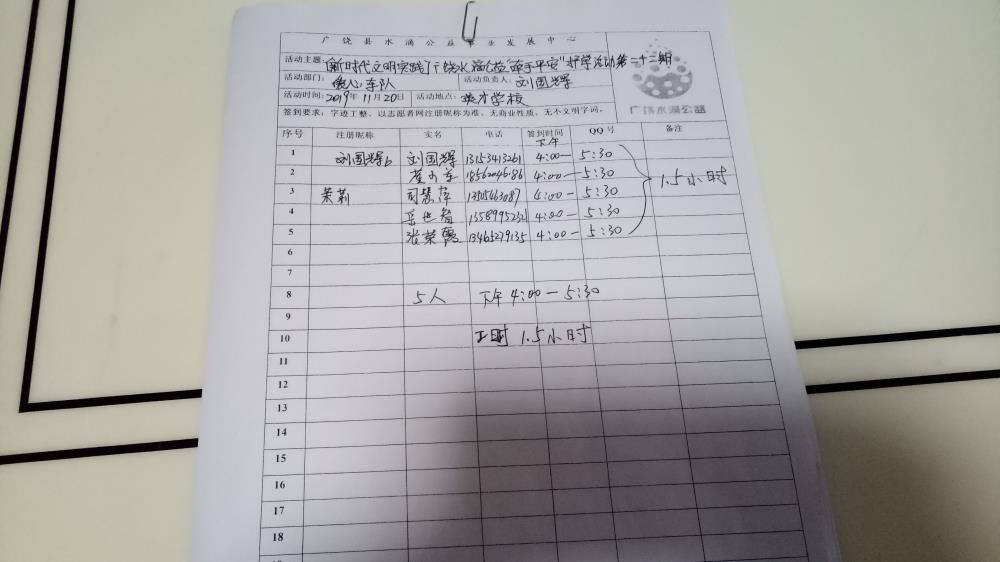 广饶县水滴公益事业发展中心
活动主题:[新时代文明实践]广饶水滴公益"牵手平安"护学活动第二十三期
活动部门: 暖心车队 活动负责人: 刘国辉
活动时间: 2019年11月20日 活动地点: 英才学校
签到要求:字迹工整,以志愿者网注册昵称为准,无商业性质,无不文明字词。
广饶水滴公益
序号 注册昵称 实名 电话 签到时间 QQ号 备注
下午
1 刘国辉b 刘国辉 13153413261 4:00— 5:30
2 18562046186 4:00— 5:30 1.5小时
3 茉莉 司慧萍 13505463087 4:00— 5:30
4 岳世智 13589952321 4:00— 5:30
5 张荣霞 13465279135 4:00— 5:30
6
7
8 5人 下午 4:00—5:30
9
10 工时 1.5小时
11
12
13
14
15
16
17
18